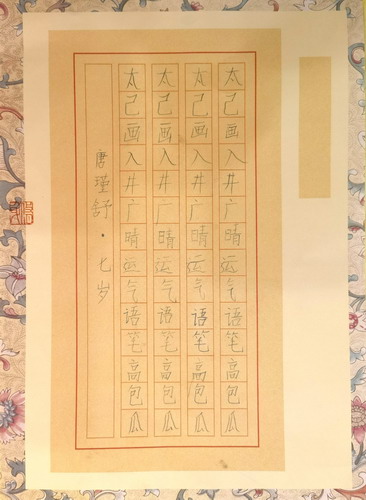 太己画入井广晴运气语笔高包瓜
太己画入井广晴运气语笔高包瓜
太己画入井广晴运气语笔高包瓜
太己画入井广晴运气语笔高包瓜
唐瑾舒·七岁